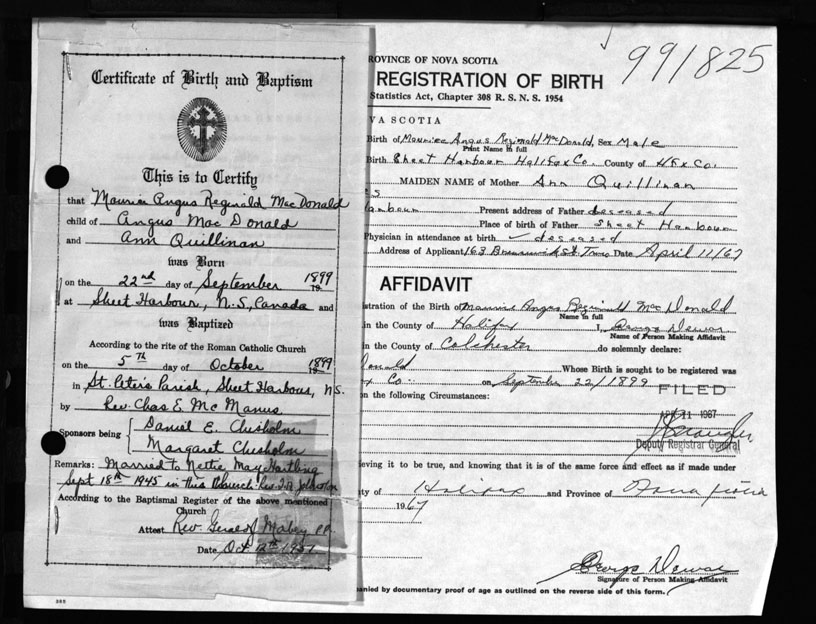 Certificate of Birth and Baptism
This is to Certify
that Maurice Angus Reginald MacDonald
child of Angus MacDonald
and Ann Quillinan
was Born
on the 22nd day of September 1899
at Sheet Harbour, N.S, Canada and
was Baptized
According to the rite of the Roman Catholic Church
on the 5th day of October 1899
in St. Peters Parish, Sheet Harbour, N.S.
by Rev. Chas E. McManus
Sponsors being Daniel E. Chisholm
Margaret Chisholm
Remarks: Married to Nettie May Hartling
Sept 18th 1945 in this Church
According to the Baptismal Register of the above mentioned
Church
Attest Rev. Gerald Mabey P.P.
Date Oct 12th 1957
991825
PROVINCE OF NOVA SCOTIA
REGISTRATION OF BIRTH
Statistics Act, Chapter 308 R. S. N. S. 1954
VA SCOTIA
Birth of Maurice Angus Reginald MacDonald, Sex Male
Print Name in full
Birth Sheet Harbour Halifax Co. County of Hfx Co.
MAIDEN NAME of Mother Ann Quillinan
Present address of Father deceased
Place of birth of Father Sheet Harbour
Physician in attendance at birth deceased
Address of Applicant 163 Brunswick St. Truro Date April 11/67
AFFIDAVIT
istration of the Birth of Maurice Angus Reginald MacDonald
Name in full
in the County of Halifax I, George Dewar
Name of Person Making Affidavit
in the County of Colchester do solemnly declare:
onald Whose Birth is sought to be registered was
x Co. on September 22/1899
FILED
n the following Circumstances:
APR 11 1967
Deputy Registrar General
ieving it to be true, and knowing that it is of the same force and effect as if made under
ty of Halifax and Province of Nova Scotia
1967
George Dewar
Signature of Person Making Affidavit
anied by documentary proof of age as outlined on the reverse side of this form.